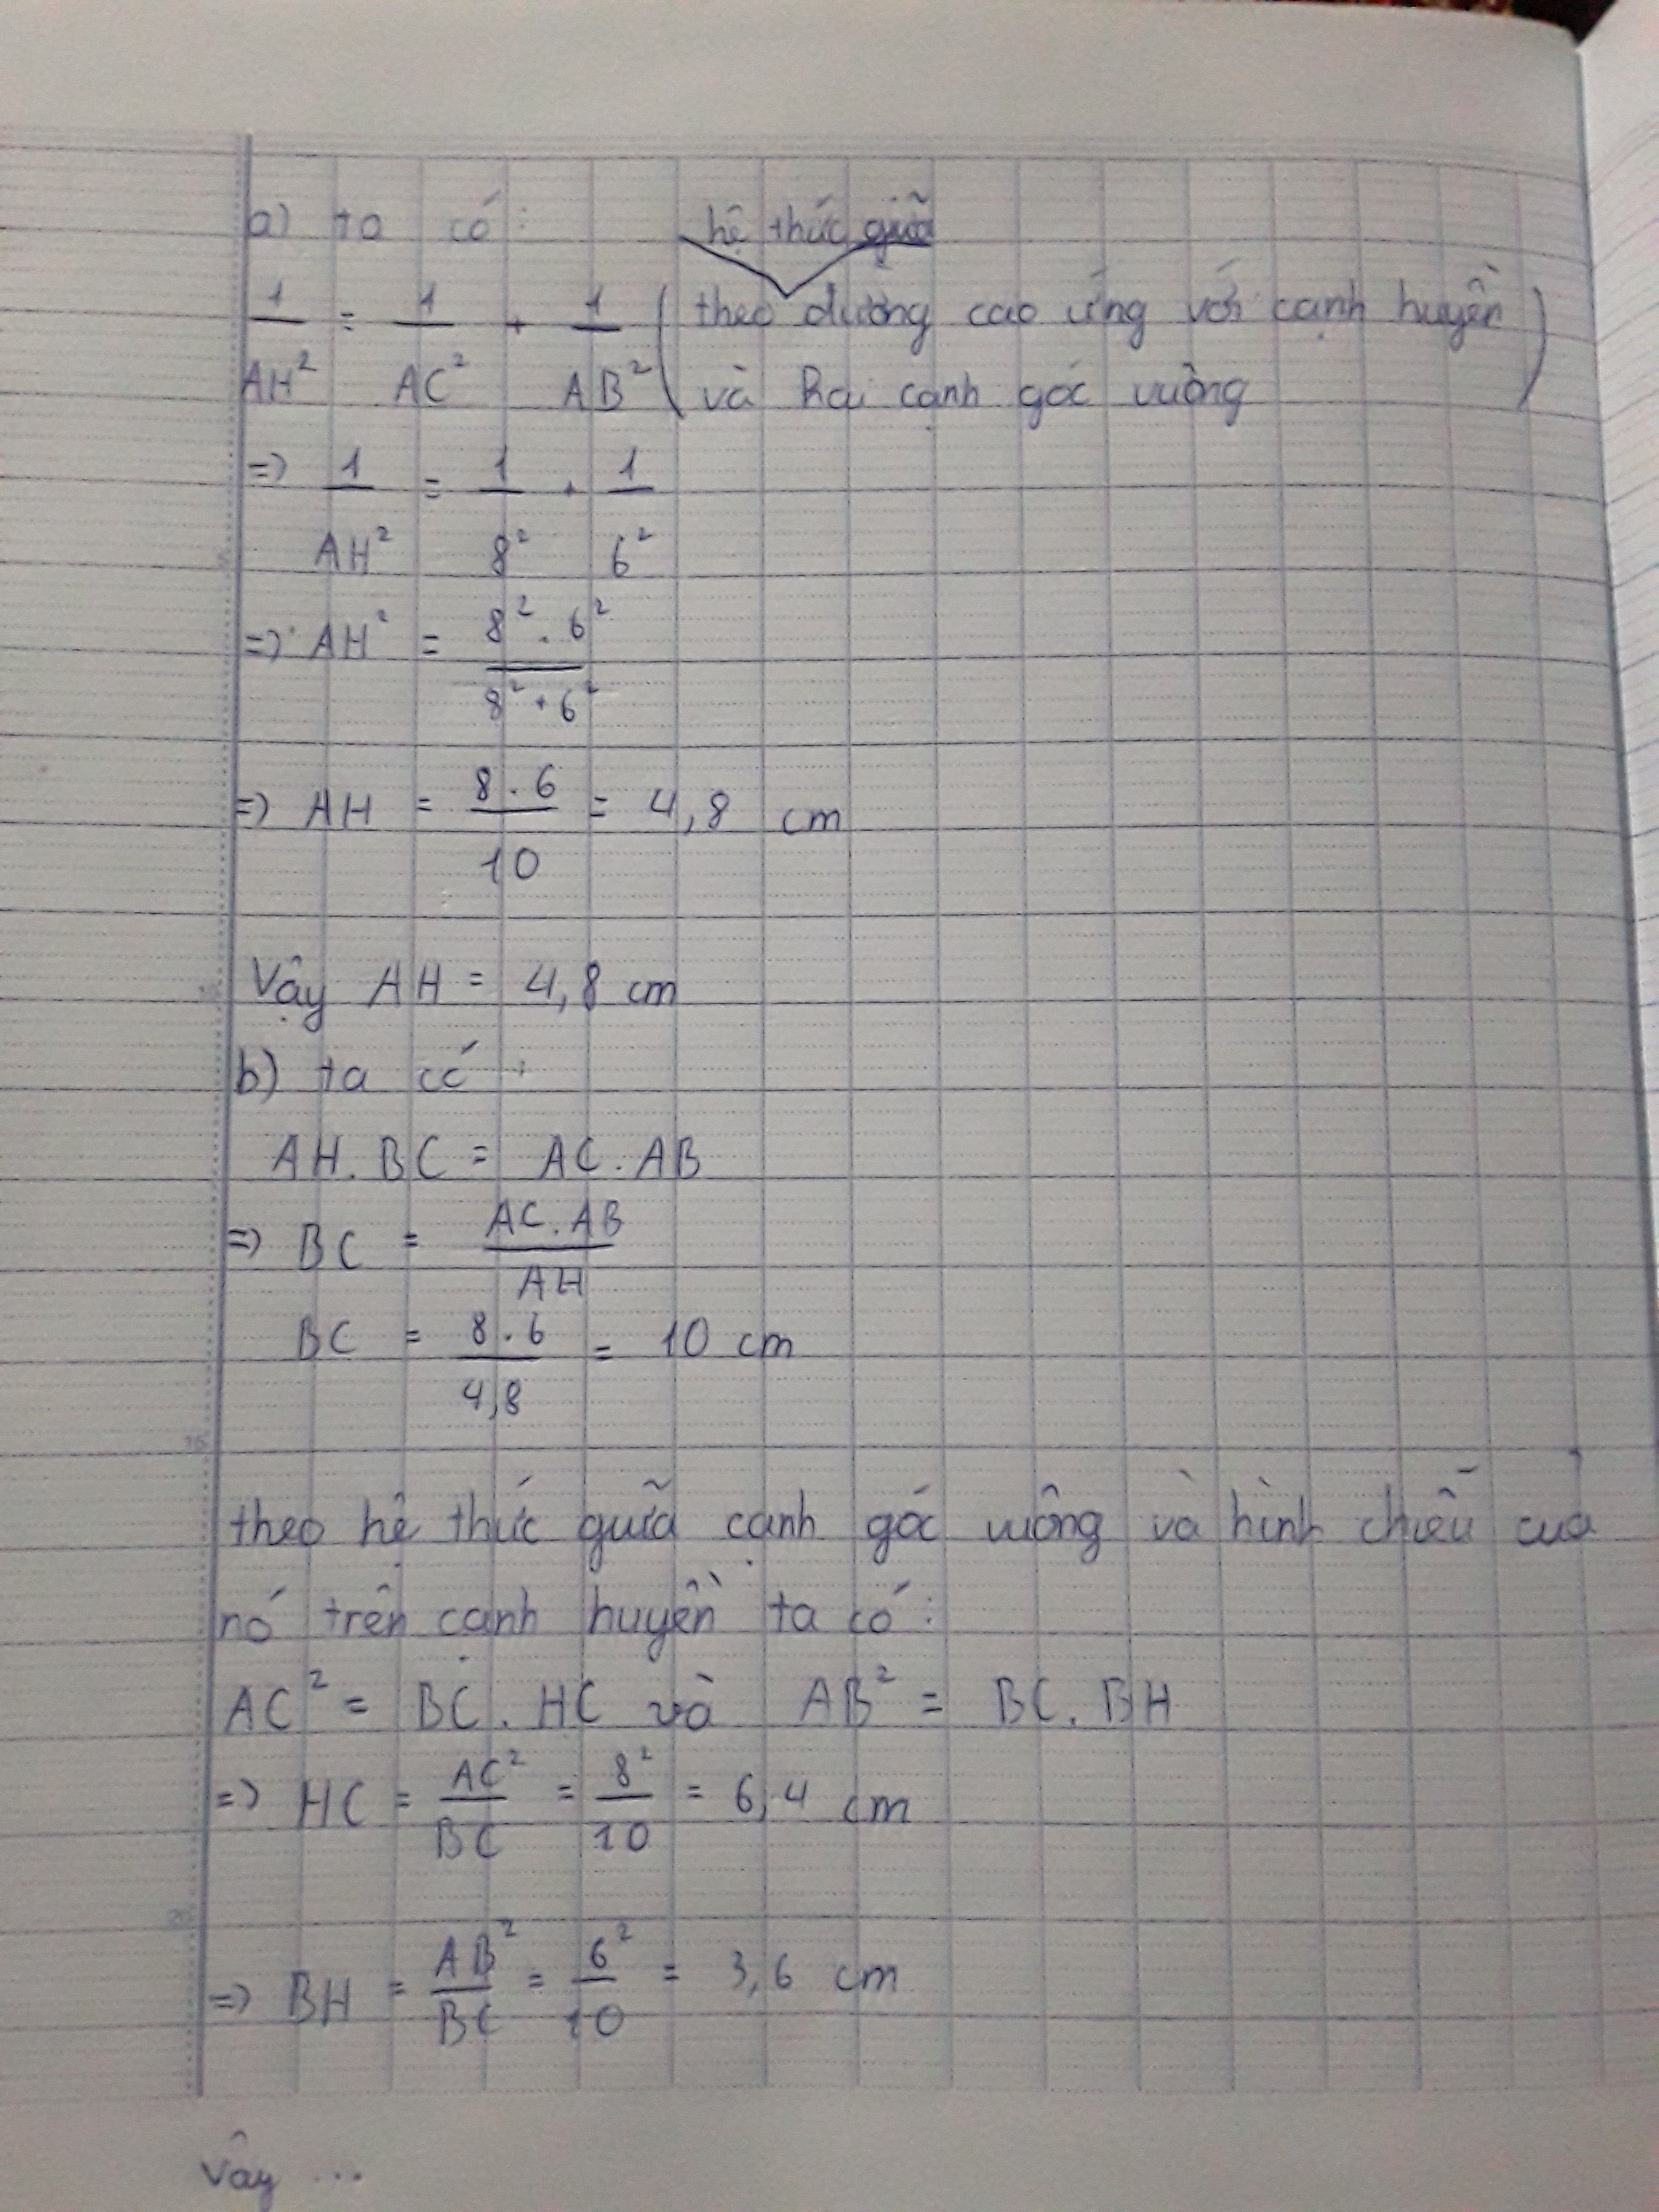 a) ta có:
hệ thức giữa
1/AH² = 1/AC² + 1/AB² (theo đường cao ứng với cạnh huyền
và hai cạnh góc vuông)
=> 1/AH² = 1/8² + 1/6²
=> AH² = 8² . 6² / 8² + 6²
=> AH = 8 . 6 / 10 = 4,8 cm
Vậy AH = 4,8 cm
b) ta có:
AH . BC = AC . AB
=> BC = AC . AB / AH
BC = 8 . 6 / 4,8 = 10 cm
theo hệ thức giữa cạnh góc vuông và hình chiếu của
nó trên cạnh huyền ta có:
AC² = BC . HC và AB² = BC . BH
=> HC = AC²/BC = 8²/10 = 6,4 cm
=> BH = AB²/BC = 6²/10 = 3,6 cm
Vậy ...